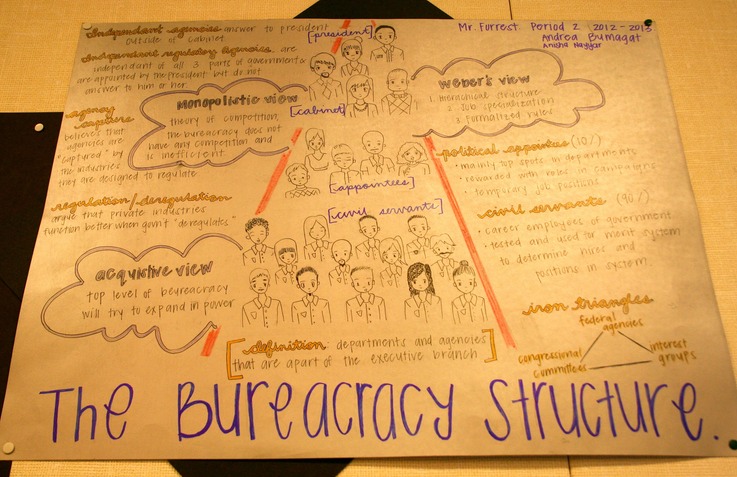 Independent agencies answer to president
outside of cabinet
Independent regulatory agencies are
independent of all 3 parts of government &
are appointed by the President but do not
answer to him or her.
[president]
Mr. Forrest Period 2 2012-2013
Andrea Bumagat
Anisha Nayyar
monopolistic view
theory of competition,
the bureacracy does not
have any competition and
is inefficient.
[cabinet]
weber's view
1. hierarchical structure
2. Job specialization
3. formalized rules
agency
capture
believes that
agencies are
"captured" by
the industries
they are designed to regulate
regulation/deregulation
argue that private industries
function better when govn't "deregulates"
acquisitive view
top level of beureacracy
will try to expand in power
[appointees]
[civil servants]
political appointees (10%)
• mainly top spots in departments
• rewarded with roles in campaigns
• temporary job positions
civil servants (90%)
• career employees of government
• tested and used for merit system
to determine hires and
positions in system.
iron triangles
federal
agencies
congressional
committees
interest
groups
[definition departments and agencies
that are apart of the executive branch]
The Bureacracy Structure.